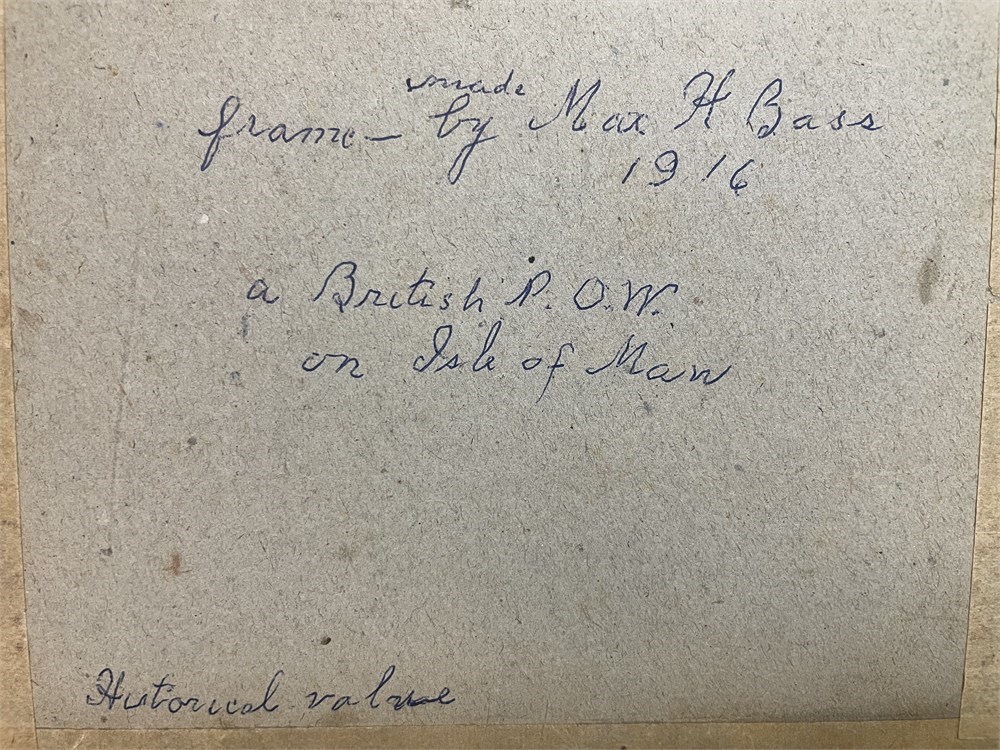 frame - made by Max H Bass
1916
a British P.O.W.
on Isle of Man
Historical value